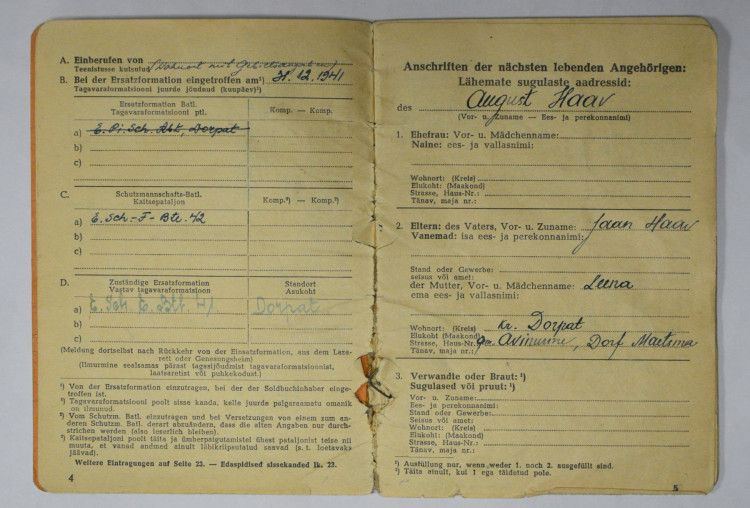 A. Einberufen von
Teenistusse kutsutud (Wohnort und
B. Bei der Ersatzformation eingetroffen am¹) 31. 12. 1941
Tagavaraformatsiooni juurde jõudnud (kuupäev)¹)
Ersatzformation Batl. Komp. — Komp.
Tagavaraformatsiooni ptl.
a) E. Pi. Sch. Abt, Dorpat
b)
c)
C. Schutzmannschafts-Batl. Komp.³) — Komp.³)
Kaitsepataljon
a) E. Sch.-F-Btl. 42
b)
c)
D. Zuständige Ersatzformation Standort
Vastav tagavaraformatsioon Asukoht
a) E. Sch. E. Btl. Dorpat
b)
c)
(Meldung dortselbst nach Rückkehr von der Einsatzformation, aus dem Laza-
rett oder Genesungsheim)
(Ilmurmine sealsamas pärast tagestjõudmist tagavaraformatsioonist,
laatsaretist või puhkekodust.)
¹) Von der Ersatzformation einzutragen, bei der der Soldbuchinhaber einge-
troffen ist.
²) Tagavaraformatsiooni poolt sisse kanda, kelle juurde palgaraamatu omanik
on ilmunud.
³) Vom Schutzm. Batl. einzutragen und bei Versetzungen von einem zum an-
deren Schutzm. Batl. derart abzuändern, dass die alten Angaben nur durch-
strichen werden (also leserlich bleiben).
⁴) Kaitsepataljoni poolt täita ja ümberpaigutamistel ühest pataljonist teise nii
muuta, et vanad andmed ainult läbikriipsutatud saavad (s. t. loetavaks
jäävad).
Weitere Eintragungen auf Seite 23. — Edaspidised sissekanded lk. 23.
4
Anschriften der nächsten lebenden Angehörigen:
Lähemate sugulaste aadressid:
des August Haav
(Vor- u. Zuname — Ees- ja perekonnanimi)
1. Ehefrau: Vor- u. Mädchenname:
Naine: ees- ja vallasnimi:
Wohnort: (Kreis)
Elukoht: (Maakond)
Strasse, Haus-Nr.:
Tänav, maja nr.:
2. Eltern: des Vaters, Vor- u. Zuname: Jaan Haav
Vanemad: isa ees- ja perekonnanimi:
Stand oder Gewerbe:
seisus või amet:
der Mutter, Vor- u. Mädchenname: Leena
ema ees- ja vallasnimi:
Wohnort: (Kreis) Kr. Dorpat
Elukoht (Maakond)
Strasse, Haus-Nr. Gm. Avinurme, Dorf Maetsma
Tänav, maja nr.:
3. Verwandte oder Braut: ¹)
Sugulased või pruut: ²)
Vor- u. Zuname:
Ees- ja perekonnanimi:
Stand oder Gewerbe:
seisus või amet:
Wohnort: (Kreis)
Elukoht: (Maakond)
Strasse, Haus-Nr.:
Tänav, maja Nr.:
¹) Ausfüllung nur, wenn weder 1. noch 2. ausgefüllt sind.
²) Täita ainult, kui 1 ega täidetud pole.
5